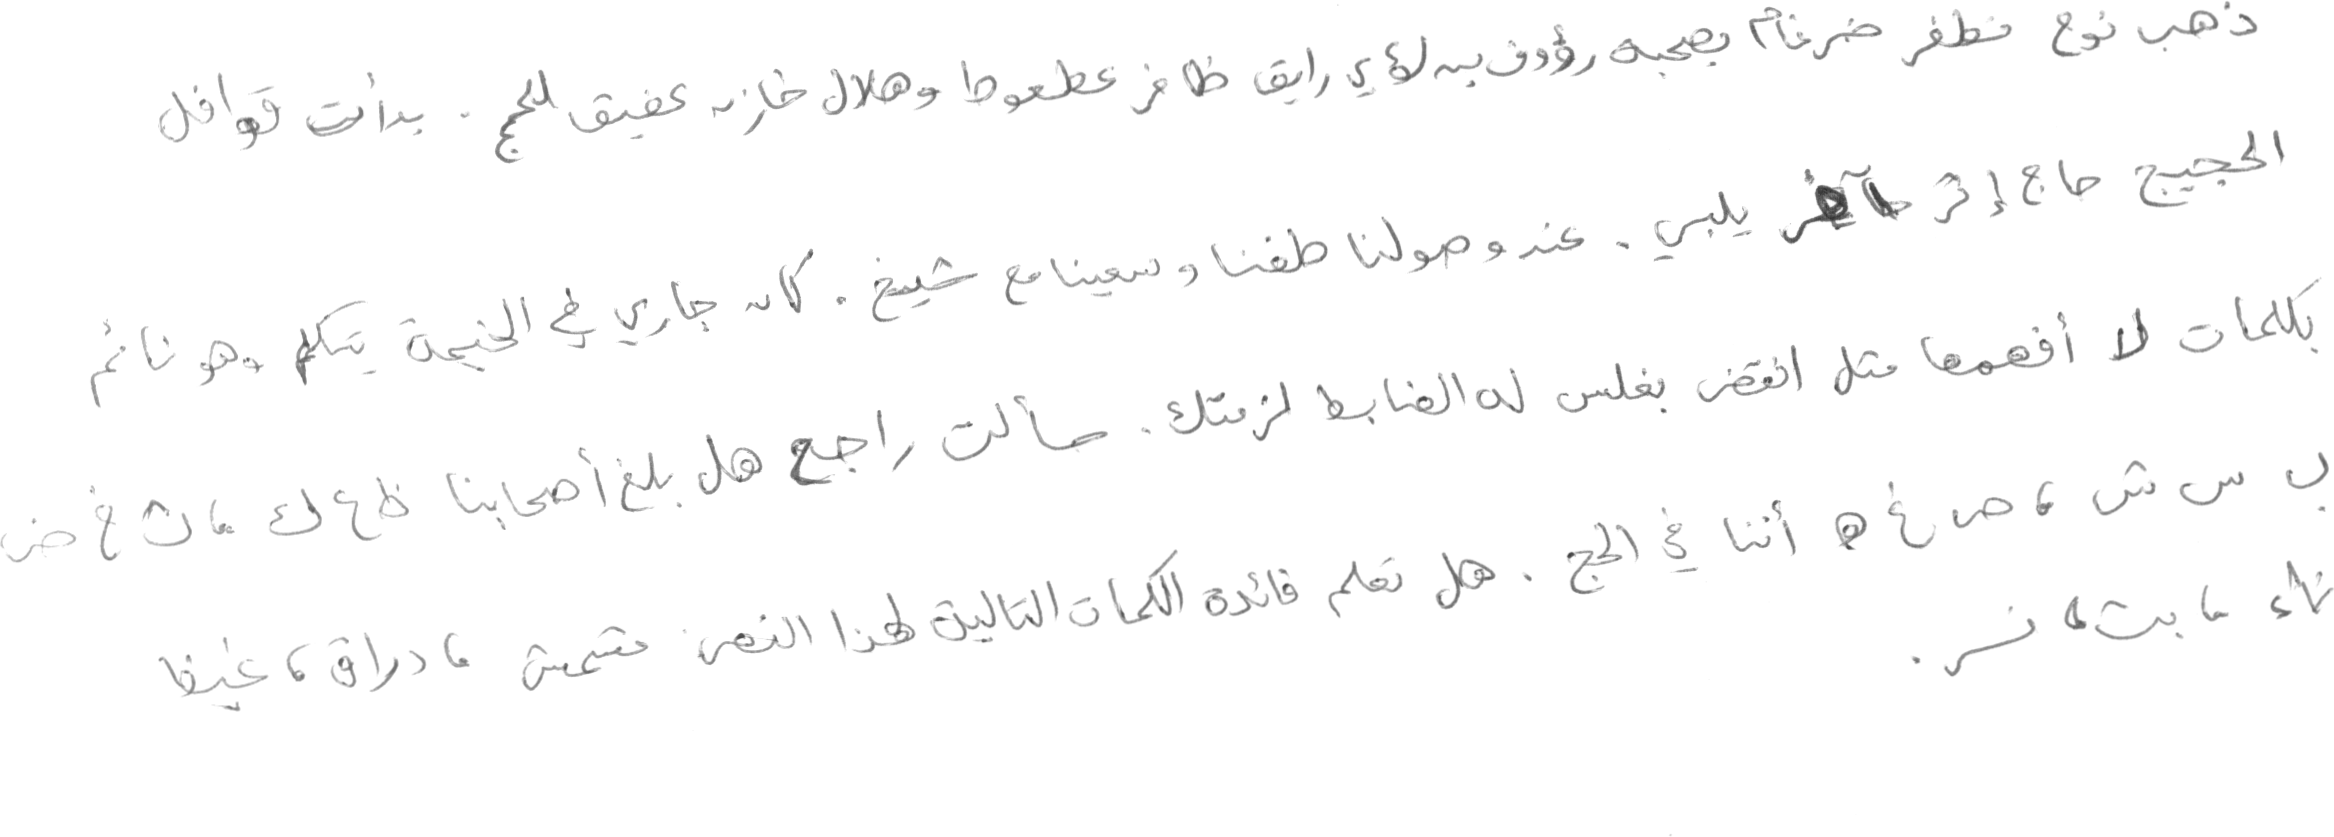 ذهب نوح مظفر ضرغام بصحبة رؤوف بن لؤي رايق ظافر عطعوط وهلال خازن عفيق للحج . بدأت قوافل
الحجيج حاج إثر حآخر يلبي . عند وصولنا طفنا وسعينا مع شيخ . كان جاري في الخيمة يتكلم وهو نائم
بكلمات لا أفهمها مثل انقض بغلس له الضابط لزمتك . سألت راجح هل بلغ أصحابنا ظ ع ك ، ث غ ض
ب س ش ، ص غ ه أننا في الحج . هل تعلم فائدة الكلمات التالية لهذا النص: مشمش ، دراق ، غيظ
ثأء ، بث ، نسر .